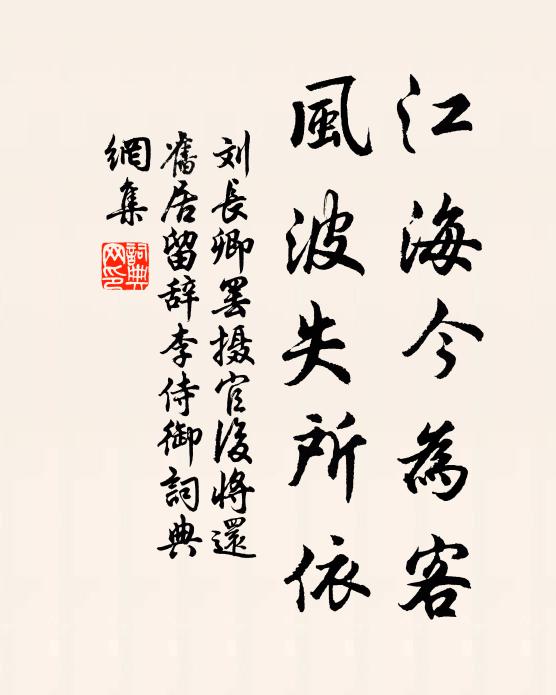 江海今為客
風波失所依
刘長卿罢摄官後將還
舊居留辞李侍御詞典
網集
詞典
网印